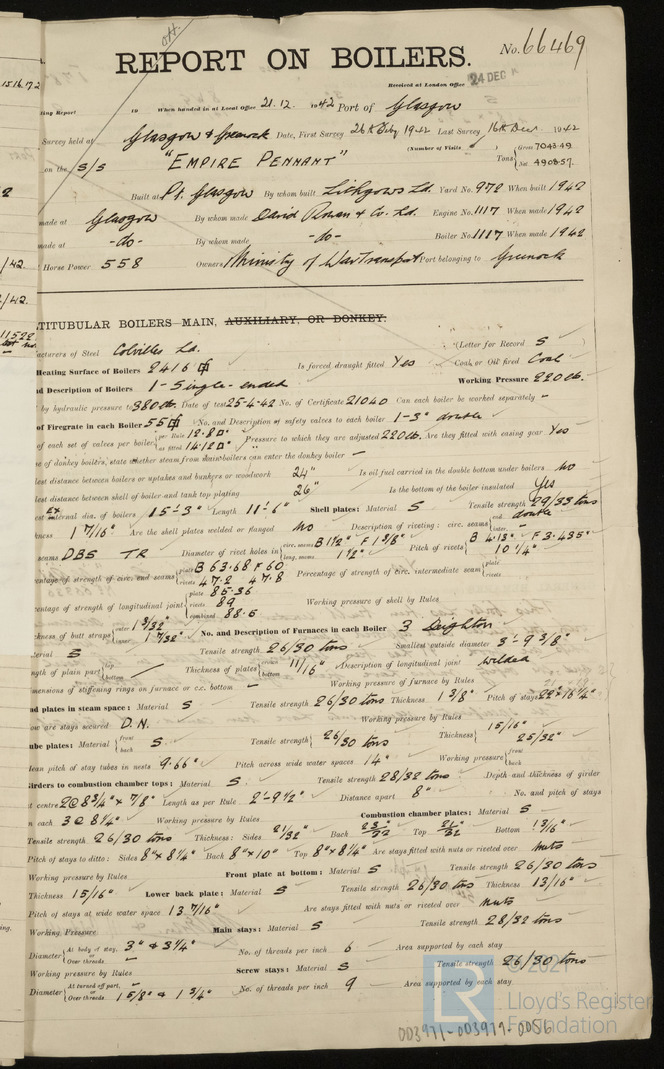 REPORT ON BOILERS.
No. 66469
Received at London Office 24 DEC
ting Report 19 When handed in at Local Office 21.12. 1942 Port of Glasgow
Survey held at Glasgow & Greenock Date, First Survey 26th Feby 1942 Last Survey 16th Decr 1942
on the S/S "EMPIRE PENNANT" (Number of Visits ) Tons Gross 7043.49 Net 4908.57
Built at Pt. Glasgow By whom built Lithgows Ld. Yard No. 972 When built 1942
made at Glasgow By whom made David Rowan & Co. Ld. Engine No. 1117 When made 1942
made at -do- By whom made -do- Boiler No. 1117 When made 1942
Horse Power 558 Owners Ministry of War Transport Port belonging to Greenock
TITUBULAR BOILERS—MAIN, AUXILIARY, OR DONKEY.
facturers of Steel Colvilles Ld. (Letter for Record S
Heating Surface of Boilers 2416 Is forced draught fitted Yes Coal or Oil fired Coal
nd Description of Boilers 1 - Single-ended Working Pressure 220 lb.
by hydraulic pressure to 380 lb. Date of test 25-4-42 No. of Certificate 21040 Can each boiler be worked separately -
of Firegrate in each Boiler 55 No. and Description of safety valves to each boiler 1-3" double
of each set of valves per boiler per Rule 12.8 as fitted 14.12 Pressure to which they are adjusted 220 lb. Are they fitted with easing gear Yes
se of donkey boilers, state whether steam from main boilers can enter the donkey boiler -
lest distance between boilers or uptakes and bunkers or woodwork 24" Is oil fuel carried in the double bottom under boilers No
lest distance between shell of boiler and tank top plating 26" Is the bottom of the boiler insulated Yes
Ex internal dia. of boilers 15'-3" Length 11'-6" Shell plates: Material S Tensile strength 29/33 tons
ness 1 7/16" Are the shell plates welded or flanged No Description of riveting: circ. seams end double inter. -
seams DBS TR Diameter of rivet holes in circ. seams B 1 1/2" F 1 3/8" long. seams 1 1/2" Pitch of rivets B 4.13" F 3.435" 10 1/4"
centage of strength of circ. end seams plate B 63.68 F 60 rivets 47.2 47.8 Percentage of strength of circ. intermediate seam plate rivets
centage of strength of longitudinal joint plate 85.36 rivets 89 combined 88.6 Working pressure of shell by Rules
ckness of butt straps outer 1 3/32" inner 1 7/32" No. and Description of Furnaces in each Boiler 3 Deighton
terial S Tensile strength 26/30 tons Smallest outside diameter 3'-9 3/8"
ngth of plain part top bottom - Thickness of plates crown bottom 11/16" Description of longitudinal joint Welded
imensions of stiffening rings on furnace or c.c. bottom - Working pressure of furnace by Rules
nd plates in steam space: Material S Tensile strength 26/30 tons Thickness 1 3/8" Pitch of stays 22" x 16 1/4"
ow are stays secured D.N. Working pressure by Rules
ube plates: Material front back S. Tensile strength 26/30 tons Thickness 15/16" 25/32"
Mean pitch of stay tubes in nests 9.66" Pitch across wide water spaces 14" Working pressure front back
Girders to combustion chamber tops: Material S. Tensile strength 28/32 tons Depth and thickness of girder
at centre 2@ 8 3/4" x 7/8" Length as per Rule 2'-9 1/2" Distance apart 8" No. and pitch of stays
n each 3 @ 8 1/4" Working pressure by Rules Combustion chamber plates: Material S
Tensile strength 26/30 tons Thickness: Sides 21/32" Back 23"/32 Top 21"/32 Bottom 13/16"
Pitch of stays to ditto: Sides 8" x 8 1/4" Back 8" x 10" Top 8" x 8 1/4" Are stays fitted with nuts or riveted over Nuts
Working pressure by Rules Front plate at bottom: Material S Tensile strength 26/30 tons
Thickness 15/16" Lower back plate: Material S Tensile strength 26/30 tons Thickness 13/16"
Pitch of stays at wide water space 13 7/16" Are stays fitted with nuts or riveted over Nuts
Working Pressure Main stays: Material S Tensile strength 28/32 tons
Diameter At body of stay, or Over threads 3" & 3 1/4" No. of threads per inch 6 Area supported by each stay
Working pressure by Rules Screw stays: Material S Tensile strength 26/30 tons
Diameter At turned off part, or Over threads - 1 5/8" & 1 3/4" No. of threads per inch 9 Area supported by each stay
LR © 2021 Lloyd's Register Foundation
003971-003979-0056